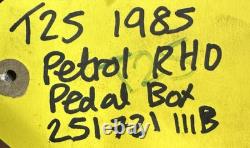 T25 1985
Petrol RHD
Pedal Box
251 721 111B